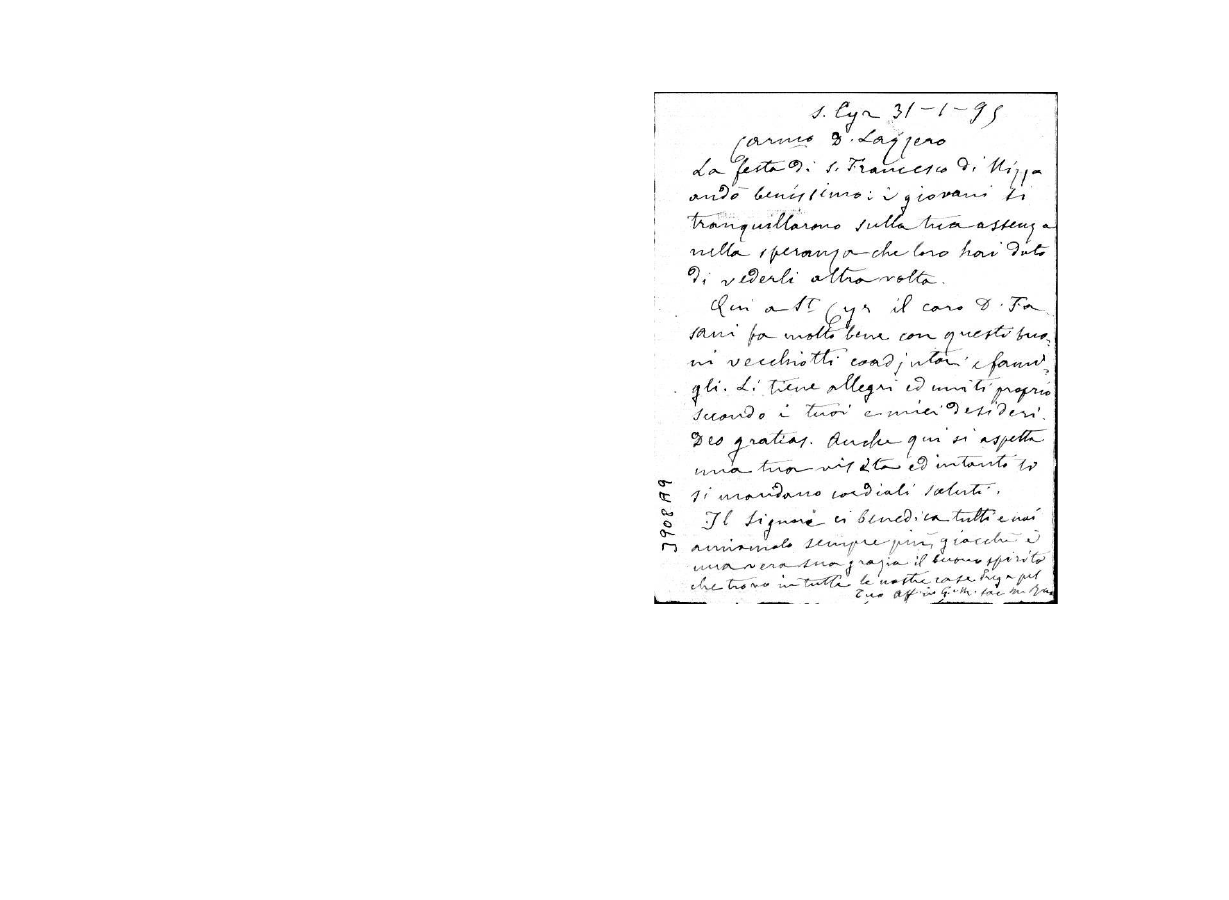 S. Cyr 31-1-95
Carmo D. Lazzero
La festa di S. Francesco di Nizza
andò benissimo: i giovani si
tranquillarono sulla tua assenza
nella speranza che loro hai dato
di vederli altra volta.
Qui a St Cyr il caro D. Fa
sani fa molto bene con questi buo-
ni vecchiotti coadjutori e fami-
gli. Li tiene allegri ed uniti proprio
secondo i tuoi e miei desideri.
Deo gratias. Anche qui si aspetta
una tua visita ed intanto
si mandano cordiali saluti.
Il Signore ci benedica tutti e noi
amiamolo sempre più, giacché è
una vera sua grazia il buono spirito
che trovo in tutte le nostre case Prega pel
Tuo aff. in G. M. Sac M.
J908A9